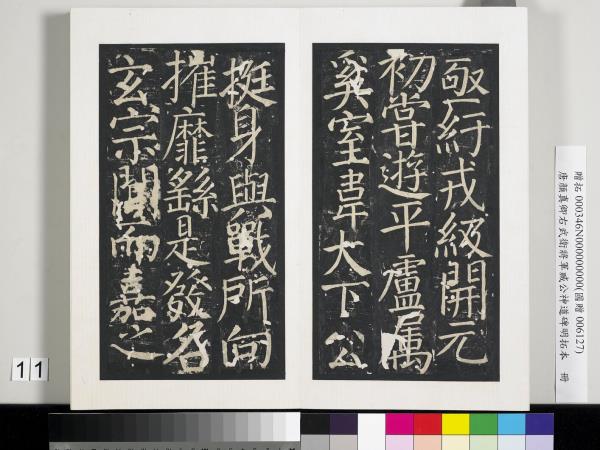 亟紆戎級開元
初嘗遊平盧屬
奚室韋大下公
挺身與戰所向
摧靡繇是發名
玄宗聞而嘉之
贈拓 000346N000000000(國贈 006127)
唐顏真卿右武衛將軍臧公神道碑明拓本 冊
11